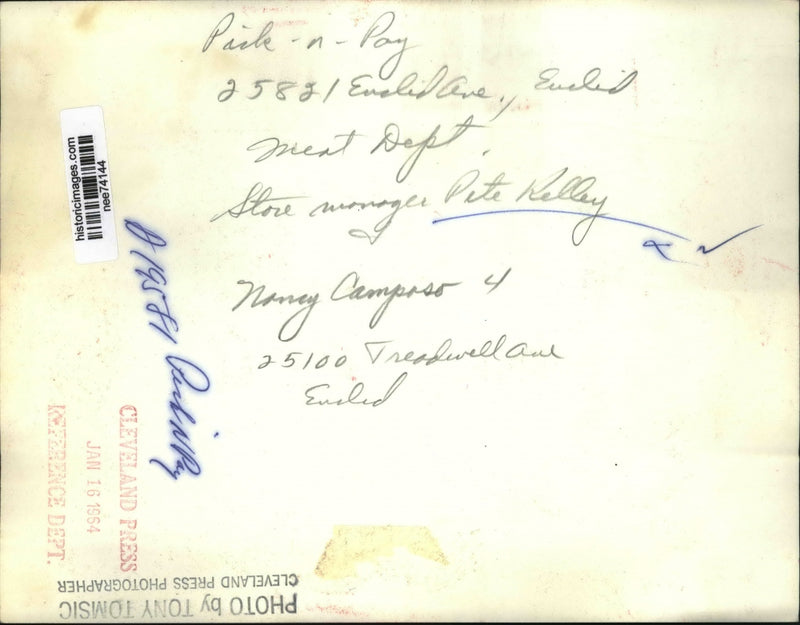 Pick-n-Pay
25821 Euclid Ave., Euclid
Meat Dept.
Store manager Pete Kelley
&
Nancy Camposo 4
25100 Treadwell Ave
Euclid
historicimages.com
nee74144
Pick N Pay
CLEVELAND PRESS
JAN 16 1964
REFERENCE DEPT.
PHOTO by TONY TOMSIC
CLEVELAND PRESS PHOTOGRAPHER